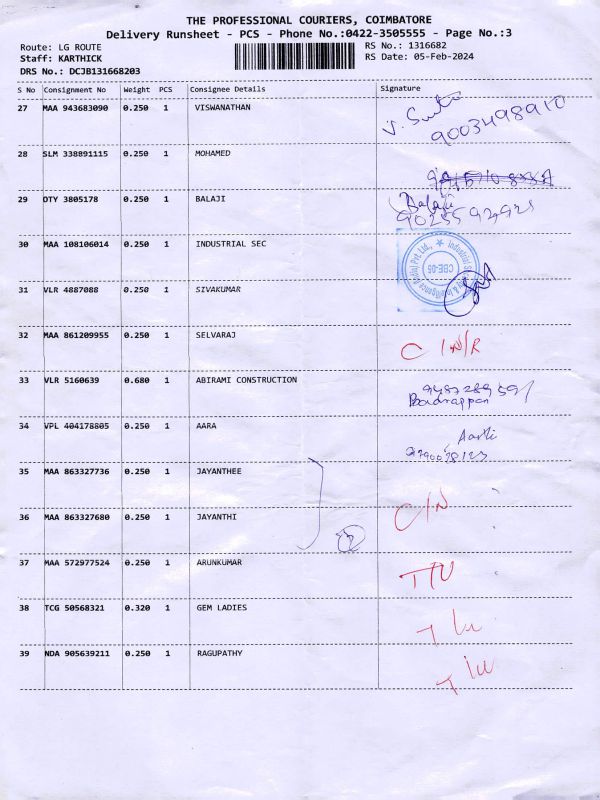 THE PROFESSIONAL COURIERS, COIMBATORE
Delivery Runsheet - PCS - Phone No.:0422-3505555 - Page No.:3
Route: LG ROUTE RS No.: 1316682
Staff: KARTHICK RS Date: 05-Feb-2024
DRS No.: DCJB131668203
S No Consignment No Weight PCS Consignee Details Signature
27 MAA 943683090 0.250 1 VISWANATHAN
9003498910
28 SLM 338891115 0.250 1 MOHAMED
29 OTY 3805178 0.250 1 BALAJI Balaji
30 MAA 108106014 0.250 1 INDUSTRIAL SEC
CBE-06
31 VLR 4887088 0.250 1 SIVAKUMAR
32 MAA 861209955 0.250 1 SELVARAJ C I/N/R
33 VLR 5160639 0.680 1 ABIRAMI CONSTRUCTION
34 VPL 404178805 0.250 1 AARA
35 MAA 863327736 0.250 1 JAYANTHEE
C/N
36 MAA 863327680 0.250 1 JAYANTHI
37 MAA 572977524 0.250 1 ARUNKUMAR
38 TCG 50568321 0.320 1 GEM LADIES
39 NDA 905639211 0.250 1 RAGUPATHY